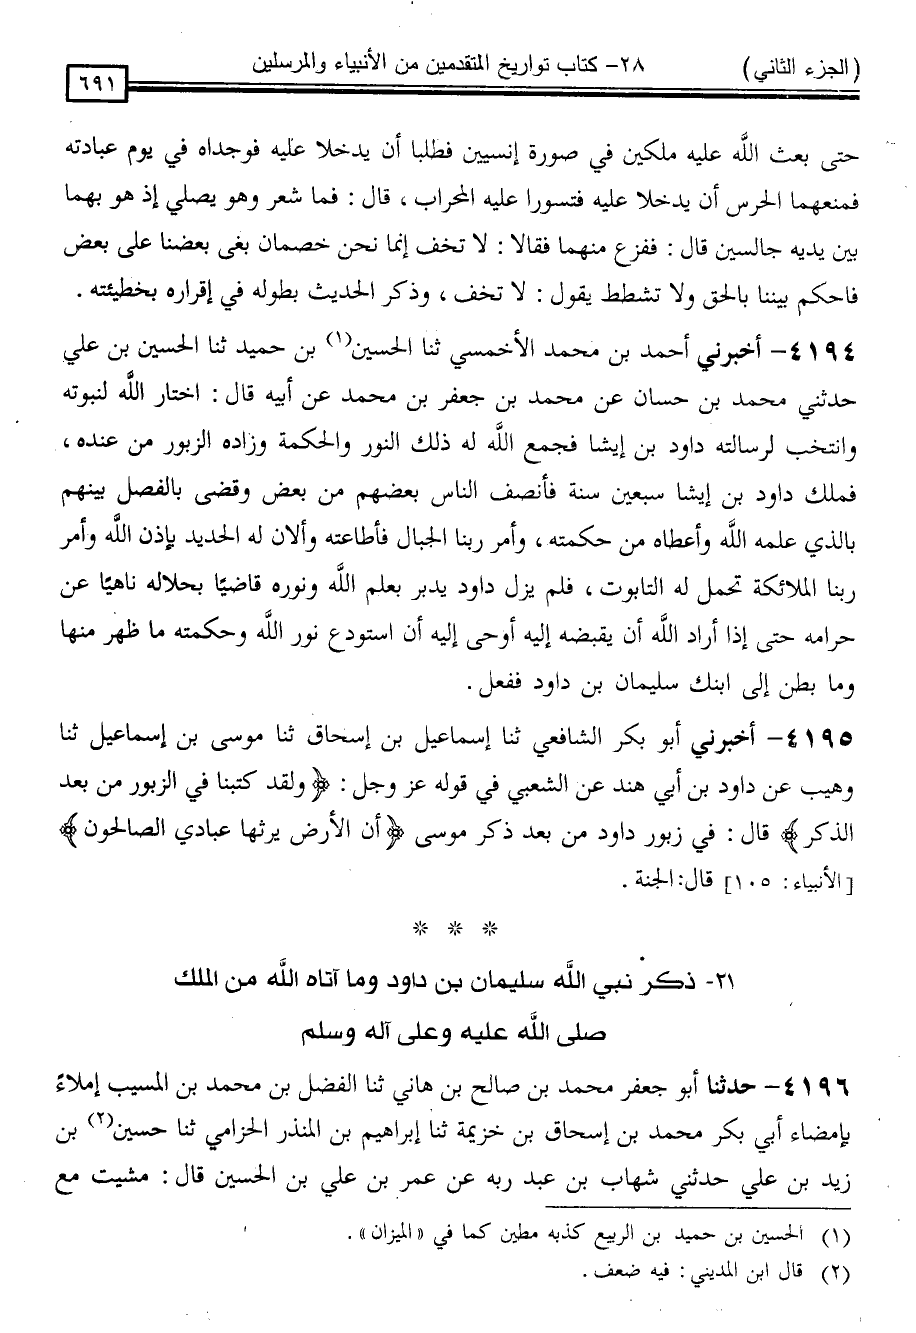 (الجزء الثاني)
٢٨- كتاب تواريخ المتقدمين من الأنبياء والمرسلين
٦٩١
حتى بعث اللَّه عليه ملكين في صورة إنسيين فطلبا أن يدخلا عليه فوجداه في يوم عبادته
فمنعهما الحرس أن يدخلا عليه فتسورا عليه المحراب ، قال : فما شعر وهو يصلي إذ هو بهما
بين يديه جالسين قال : ففزع منهما فقالا : لا تخف إنما نحن خصمان بغى بعضنا على بعض
فاحكم بيننا بالحق ولا تشطط يقول : لا تخف ، وذكر الحديث بطوله في إقراره بخطيئته .
٤١٩٤- أخبرني أحمد بن محمد الأخمسي ثنا الحسين(١) بن حميد ثنا الحسين بن علي
حدثني محمد بن حسان عن محمد بن جعفر بن محمد عن أبيه قال : اختار اللَّه لنبوته
وانتخب لرسالته داود بن إيشا فجمع اللَّه له ذلك النور والحكمة وزاده الزبور من عنده ،
فملك داود بن إيشا سبعين سنة فأنصف الناس بعضهم من بعض وقضى بالفصل بينهم
بالذي علمه اللَّه وأعطاه من حكمته ، وأمر ربنا الجبال فأطاعته وألان له الحديد بإذن اللَّه وأمر
ربنا الملائكة تحمل له التابوت ، فلم يزل داود يدبر بعلم اللَّه ونوره قاضيًا بحلاله ناهيًا عن
حرامه حتى إذا أراد اللَّه أن يقبضه إليه أوحى إليه أن استودع نور اللَّه وحكمته ما ظهر منها
وما بطن إلى ابنك سليمان بن داود ففعل .
٤١٩٥- أخبرني أبو بكر الشافعي ثنا إسماعيل بن إسحاق ثنا موسى بن إسماعيل ثنا
وهيب عن داود بن أبي هند عن الشعبي في قوله عز وجل : ﴿ ولقد كتبنا في الزبور من بعد
الذكر ﴾ قال : في زبور داود من بعد ذكر موسى ﴿ أن الأرض يرثها عبادي الصالحون ﴾
[الأنبياء : ١٠٥] قال: الجنة .
* * *
٢١- ذكر نبي اللَّه سليمان بن داود وما آتاه اللَّه من الملك
صلى اللَّه عليه وعلى آله وسلم
٤١٩٦- حدثنا أبو جعفر محمد بن صالح بن هاني ثنا الفضل بن محمد بن المسيب إملاءً
بإمضاء أبي بكر محمد بن إسحاق بن خزيمة ثنا إبراهيم بن المنذر الحزامي ثنا حسين(٢) بن
زيد بن علي حدثني شهاب بن عبد ربه عن عمر بن علي بن الحسين قال : مشيت مع
(١) الحسين بن حميد بن الربيع كذبه مطين كما في «الميزان» .
(٢) قال ابن المديني : فيه ضعف .